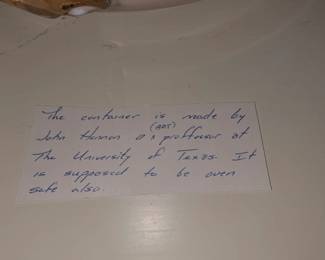 The container is made by
(ART)
John Hannon a x proffesor at
The University of Texas. It
is supposed to be oven
safe also.